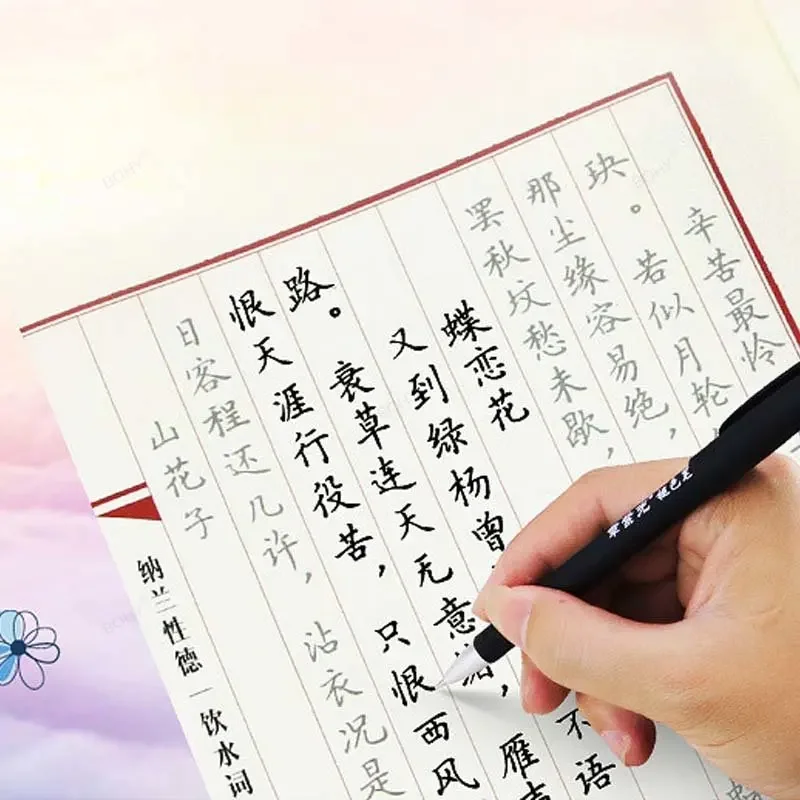 辛苦最怜
玦。若似月轮
那尘缘容易绝,
罢秋坟愁未歇,
蝶恋花
又到绿杨曾 不语
路。衰草连天无意 ,雁声
恨天涯行役苦,只恨西风
日客程还几许,沾衣况是
山花子
纳兰性德|饮水词